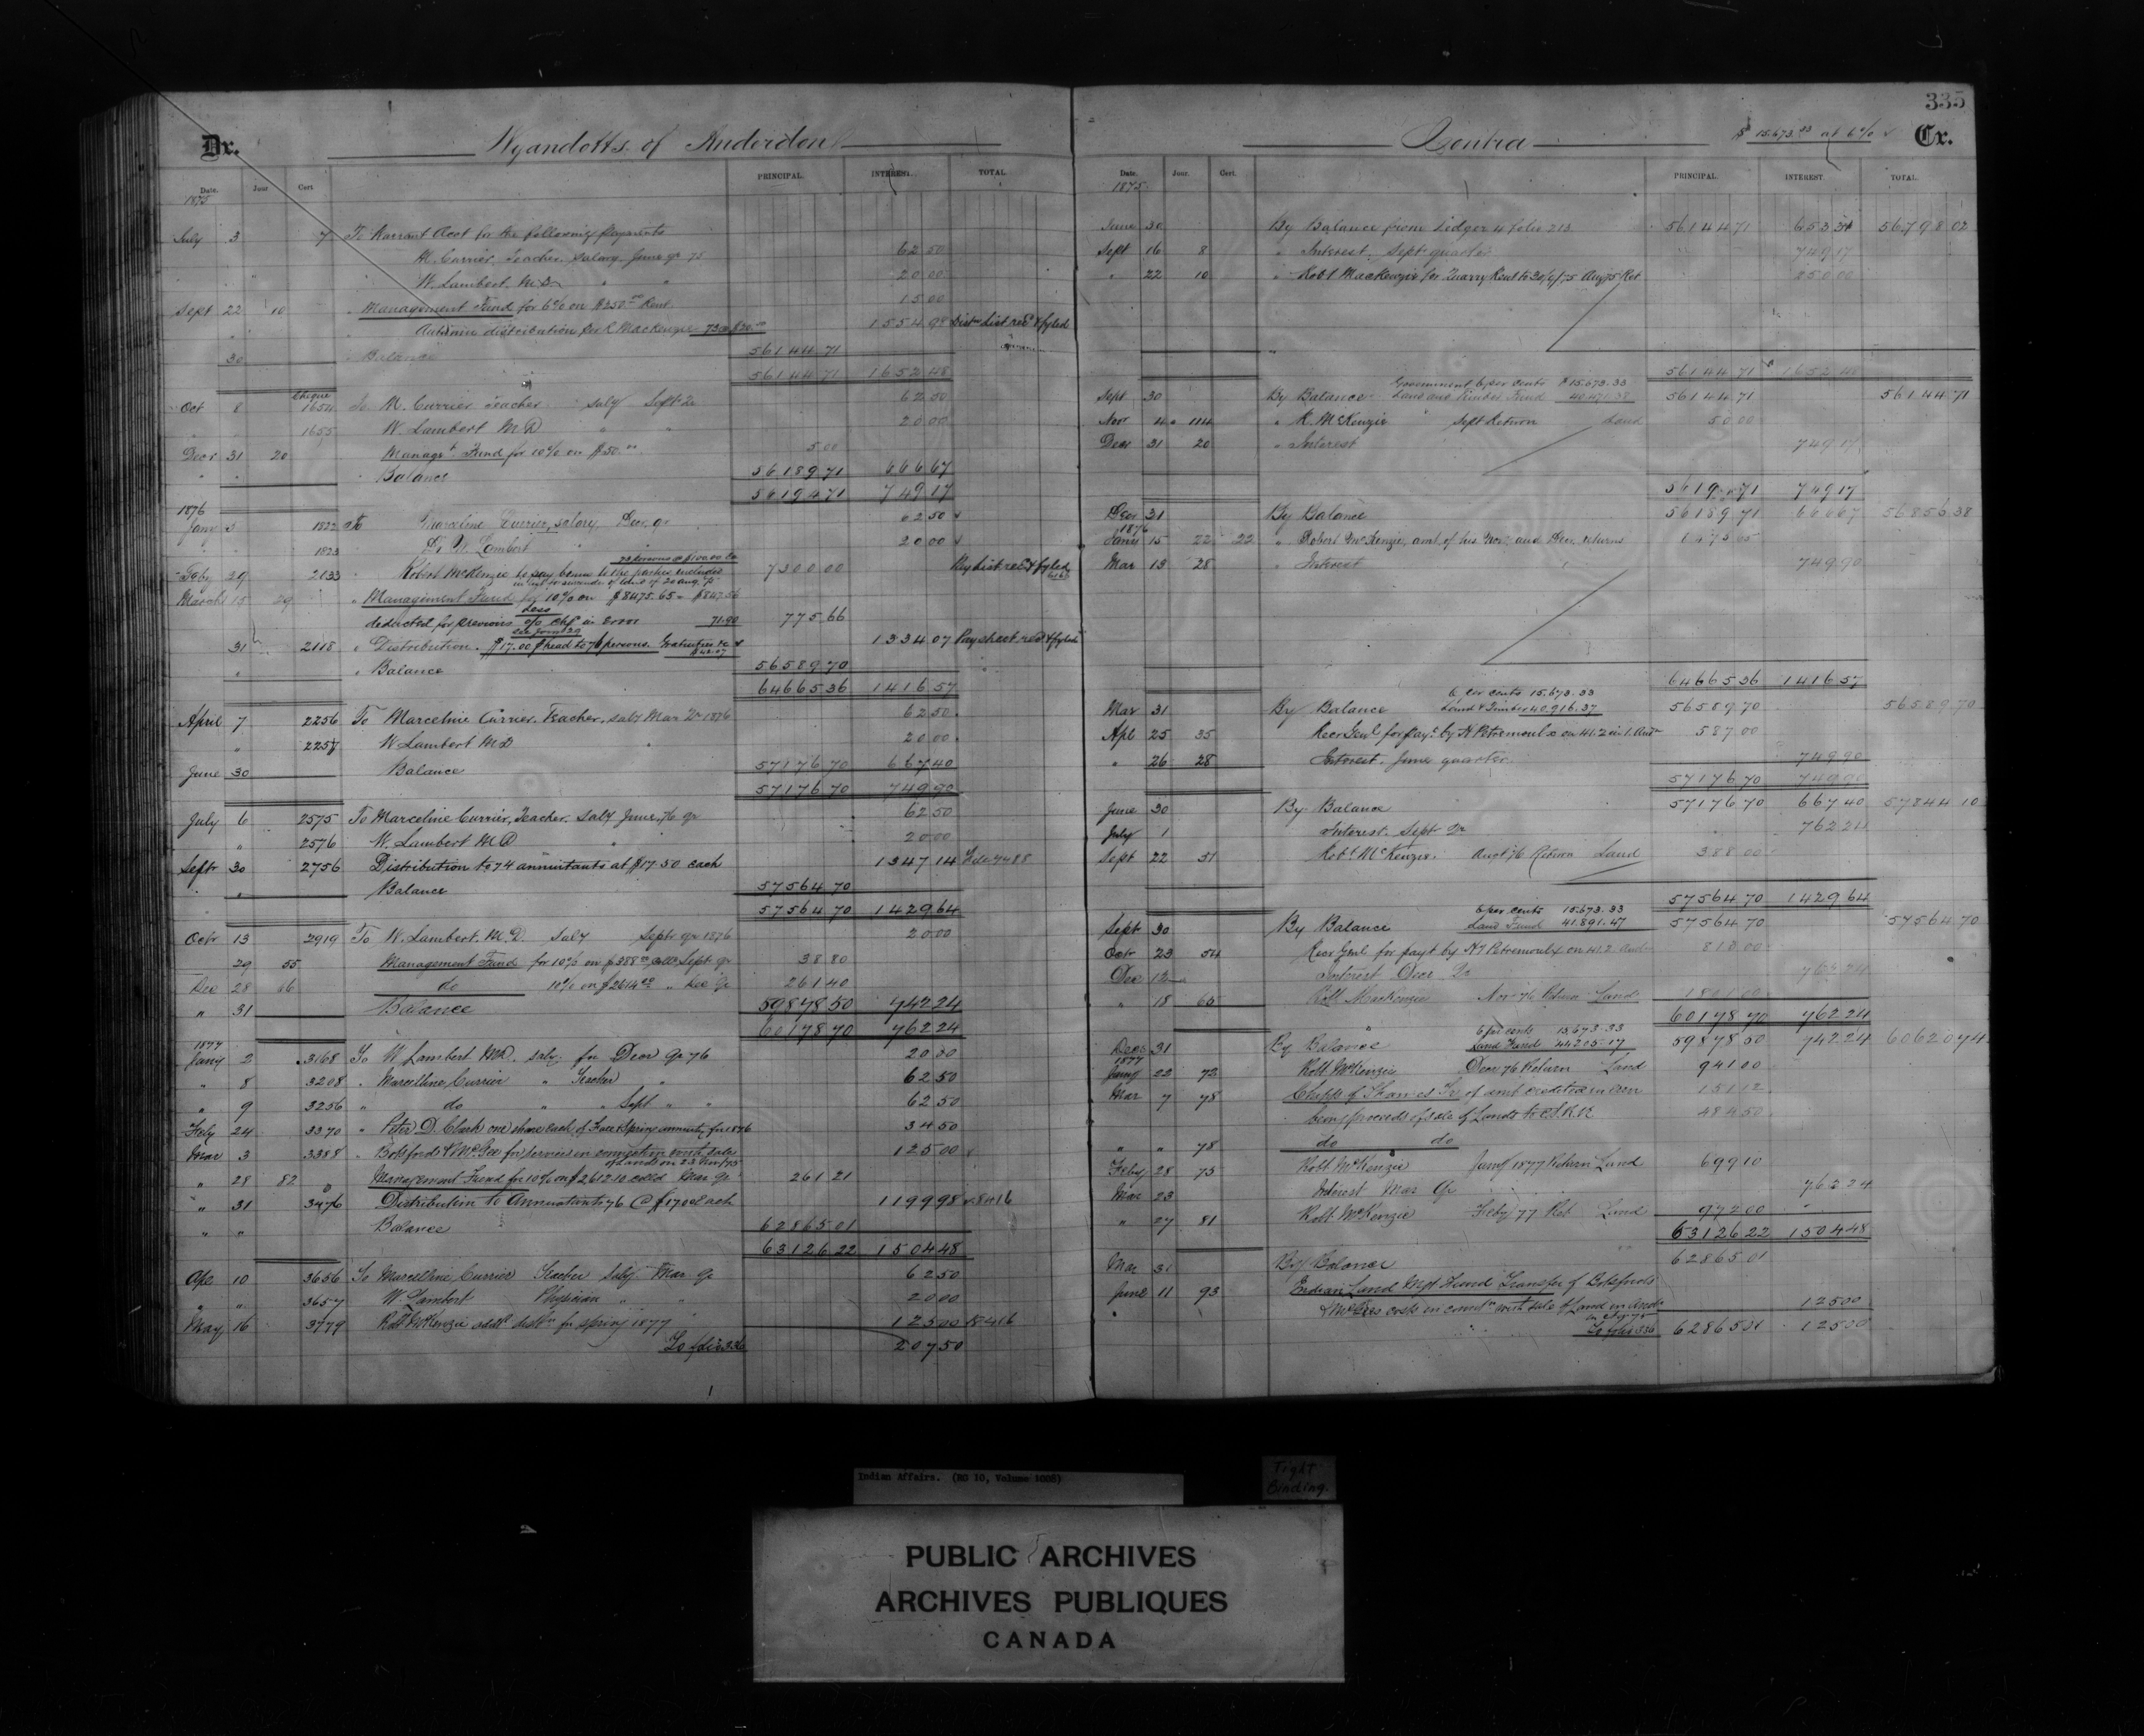 335
Dr. Wyandotts of Anderdon
Date. Jour Cert PRINCIPAL. INTEREST. TOTAL
1875
July 3 7 To Warrant Acct for the following payments
M. Currier, Teacher, Salary June qr 75 62 50
" " W. Lambert M.D. " " 20 00
Sept 22 10 " Management Fund for 6% on $250.00 Rent. 15 00
" Autumn distribution per R. Mackenzie 1554 98 Distn list recd & fyled
30 " Balance 56144 71
56144 71 1652 48
Cheque
Oct 8 1654 To M. Currier Teacher Saly Sept Qr 62 50
" " 1655 W. Lambert M.D. " " 20 00
Decr 31 20 Managt Fund for 10% on $50.00 5 00
" " " Balance 56189 71 666 67
56194 71 749 17
1876
Jany 5 1822 To Currier, salary, Dec. qr 62 50
" " 1823 Dr W. Lambert " " 20 00
73 persons @ $100.00 Ea
Feby 29 2133 Robert McKenzie to pay bonus to the parties included 7300 00 Pay list recd & fyled
in list to surrender of land of 20 Aug. 75
March 15 29 " Management Fund for 10% on $8475.65 = $847.56
Less
deducted for previous in Error 71.90 775 66
31 2118 " Distribution. $17.00 p head to 76 persons. 1334 07 Pay sheet recd & fyled
$42.07
" " Balance 56589 70
64665 36 1416 57
April 7 2256 To Marceline Currier, Teacher, saly Mar Qr 1876 62 50
" 2257 W Lambert M.D " 20 00
June 30 Balance 57176 70 667 40
57176 70 749 90
July 6 2575 To Marceline Currier, Teacher, Saly June 76 qr 62 50
" 2576 W. Lambert M.D " 20 00
Septr 30 2756 Distribution to 74 annuitants at $17.50 each 1347 14
" Balance 57564 70
57564 70 1429 64
Octr 13 2919 To W. Lambert, M.D. Saly Septr qr 1876 20 00
" 29 55 Management Fund for 10% on $388.00 Coll. Sept qr 38 80
Dec 28 66 do 10% on $2614.00 " Dec Qr 261 40
" 31 Balance 59878 50 742 24
60178 70 762 24
1877
Jany 2 3168 To W Lambert MD. saly for Decr Qr 76 20 00
" 8 3208 " Marcelline Currier " Teacher " 62 50
" 9 3256 " do " " Sept " " 62 50
Feby 24 3370 " Peter D. Clark one share each of Fall & Spring annuity for 1876 34 50
Mar 3 3388 " Botsford & McGee for services in connection with sale 125 00
of Lands on 23 Nov/75
" 28 82 Management Fund for 10% on $2612.10 colld Mar Qr 261 21
" 31 3476 Distribution to Annuitants 76 @ $17.00 each 1199 98
" " Balance 62865 01
63126 22 1504 48
Apl 10 3656 To Marcelline Currier Teacher Saly Mar Qr 62 50
" " 3657 W. Lambert Physician " " 20 00
May 16 3779 Robt McKenzie addl distn for spring 1877 125 00
To folio 336 207 50
Contra $15,673.33 at 6% Cr.
Date. Jour. Cert. PRINCIPAL. INTEREST. TOTAL.
1875
June 30 By Balance from Ledger 4 folio 213 56144 71 653 31 56798 02
Sept 16 8 " Interest, Sept quarter 749 17
" 22 10 " Robt MacKenzie for Quarry Rent to 30/6/75 Aug 75 Ret 250 00
56144 71 1652 48
Government 6 per cents $15.673.33
Sept 30 By Balance Land and Timber Fund 40.471.38 56144 71 56144 71
Nov 4 114 " R. McKenzie Sept Return Land 50 00
Decr 31 20 " Interest 749 17
56194 71 749 17
Decr 31 By Balance 56189 71 666 67 56856 38
1876
Jany 15 22 22 " Robert McKenzie, amt. of his Nov. and Dec. returns 8475 65
Mar 13 28 " Interest 749 90
64665 36 1416 57
6 per cents 15.673.33
Mar 31 By Balance Land & Timber 40,916.37 56589 70 56589 70
Apl 25 35 Recr Genl for payt by H Petremoulx on 41.2 in 1. And 587 00
" 26 28 Interest. June quarter. 749 90
57176 70 749 90
June 30 By Balance 57176 70 667 40 57844 10
July 1 Interest. Sept Qr 762 24
Sept 22 51 Robt McKenzie. Augt 76 Return Land 388 00
57564 70 1429 64
6 per cents 15.673.33
Sept 30 By Balance Land Fund 41.891.47 57564 70 57564 70
Octr 23 54 Recr Genl for payt by H J Petremoulx on 41.2 And 813 00
Dec 12 Interest Decr Qr 762 24
" 18 66 Robt MacKenzie Nov 76 Return Land 1801 00
60178 70 762 24
6 per cents 15,673.33
Decr 31 By Balance Land Fund 44205.17 59878 50 742 24 60620 74
1877
Jany 22 72 Robt McKenzie Decr 76 Return Land 941 00
Mar 7 78 Chipps of Thames for of amt credited in 151 12
being proceeds of sale of Lands to C.S.R.R 484 50
" " 78 do do
Feby 28 75 Robt McKenzie Jany 1877 Return Land 699 10
Mar 23 Interest Mar Qr 762 24
" 27 81 Robt McKenzie Feby 77 Ret Land 972 00 "
63126 22 1504 48
Mar 31 By Balance 62865 01
June 11 93 Indian Land Mgt Fund Transfer of Botsfords
& McGees costs in connn with sale of Land in And. 125 00
To folio 336 62865 01 125 00
Indian Affairs. (RG 10, Volume 1005)
Tight
Binding.
PUBLIC ARCHIVES
ARCHIVES PUBLIQUES
CANADA